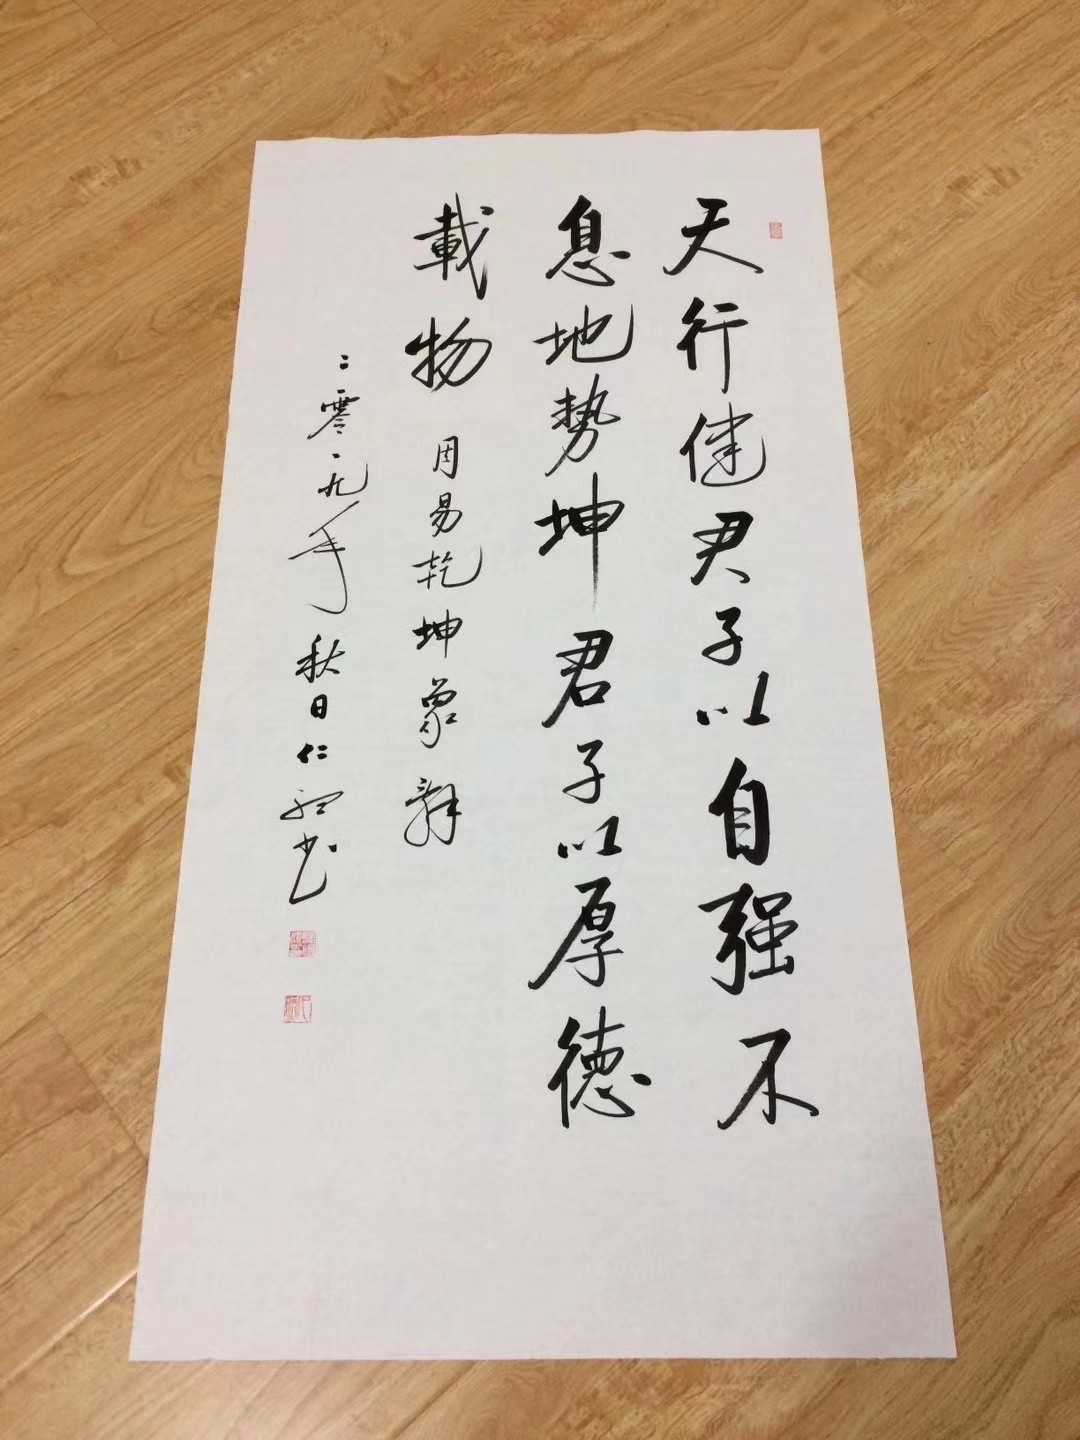 天行健君子以自强不
息地势坤君子以厚德
載物 周易乾坤象辞
二零一九年秋日仁
书